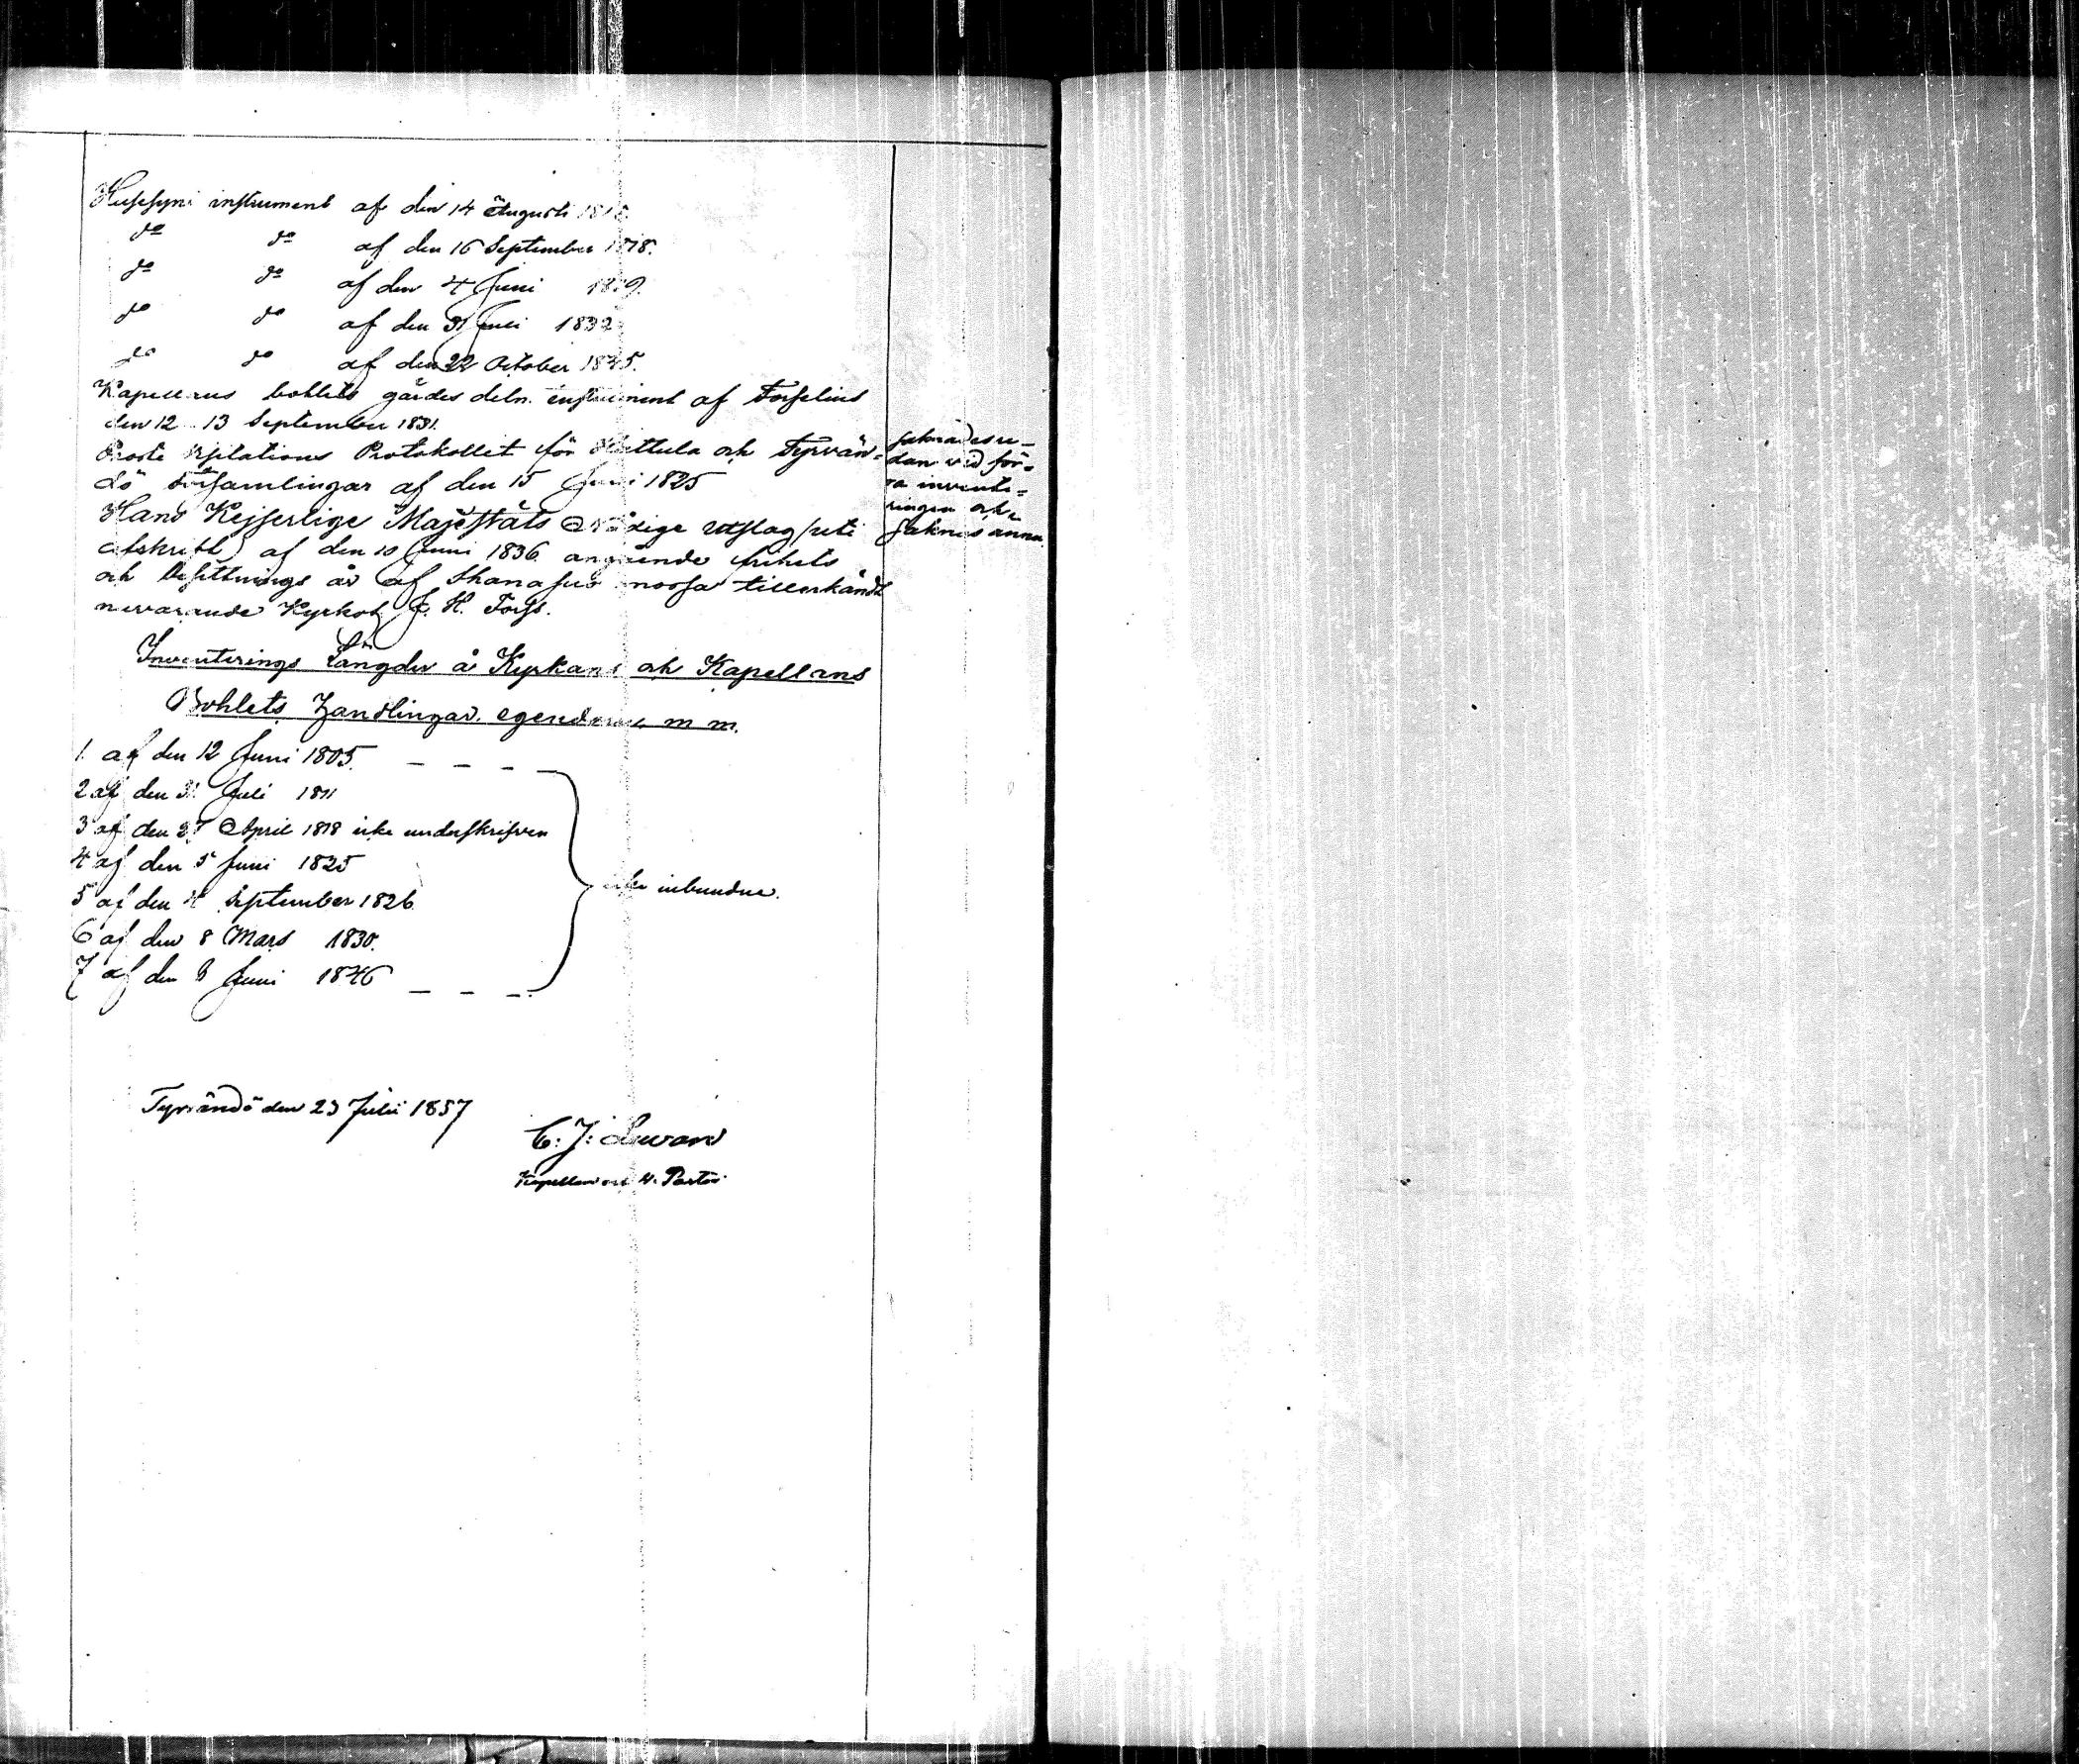 Husesyns instrument af den 14 Augusti
do do af den 16 September 1818.
do do af den 4 Juni
do do af den 31 Juli 1832
do do af den 22 October 1845.
Kapellans bohlets gärdes deln. instrument af Forselius
den 12 13 September 1831.
Proste Visitations Protokollet för Hattula och Tyrvän=
dö Församlingar af den 15 Juni 1825
saknades re=
dan vid för=
ra invente=
ringen och
saknas ännu.
Hans Kejserlige Majestäts Nådige utslag (uti
afskrift) af den 10 Juni 1836 angående frihets
och besittnings år af Ihanasuo mossa tillerkändt
nuvarande Kyrkoh. J. H. Forss.
Inventerings Längder å Kyrkans och Kapellans
Bohlets Handlingar, egendom m m.
1. af den 12 Juni 1805. _ _ _
2 af den 31 Juli 1811
3 af den 27 April 1818 icke underskrifven
4 af den 5 Juni 1825
5 af den 4 September 1826
icke inbundne.
6 af den 8 Mars 1830.
7 af den 8 Juni 1846 _ _ _
Tyrvändö den 23 Julii 1857
C: J:
Kapellan och V. Pastor